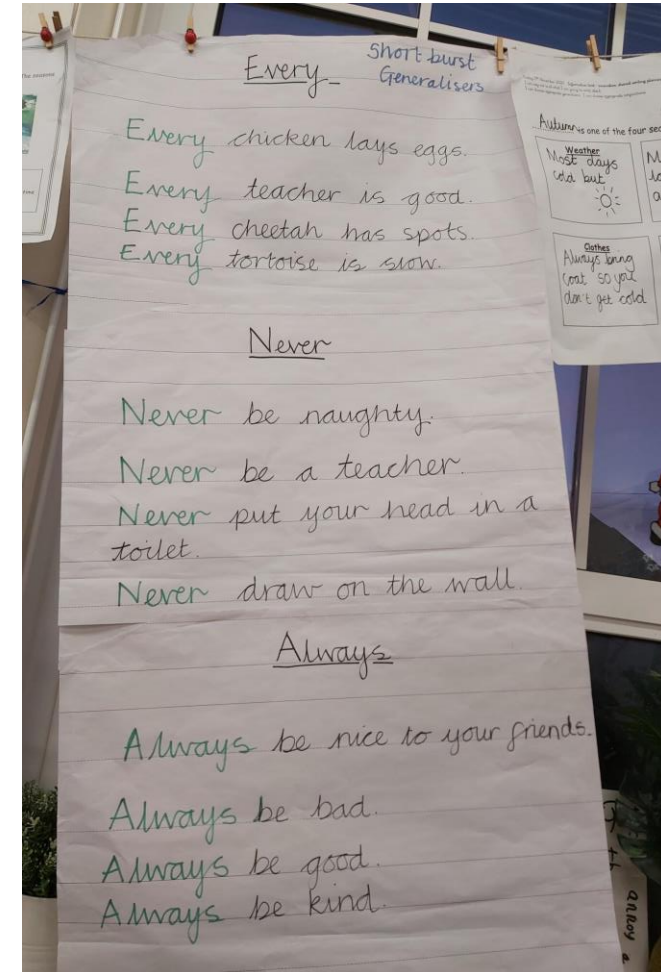 Every
Short burst
Generalisers
Every chicken lays eggs.
Every teacher is good.
Every cheetah has spots.
Every tortoise is slow.
Never
Never be naughty.
Never be a teacher.
Never put your head in a
toilet.
Never draw on the wall.
Always
Always be nice to your friends.
Always be bad.
Always be good.
Always be kind.
The seasons
Autumn is one of the four sea
Weather
Most days
cold but
Clothes
Always bring
coat so you
don't get cold
annoy a